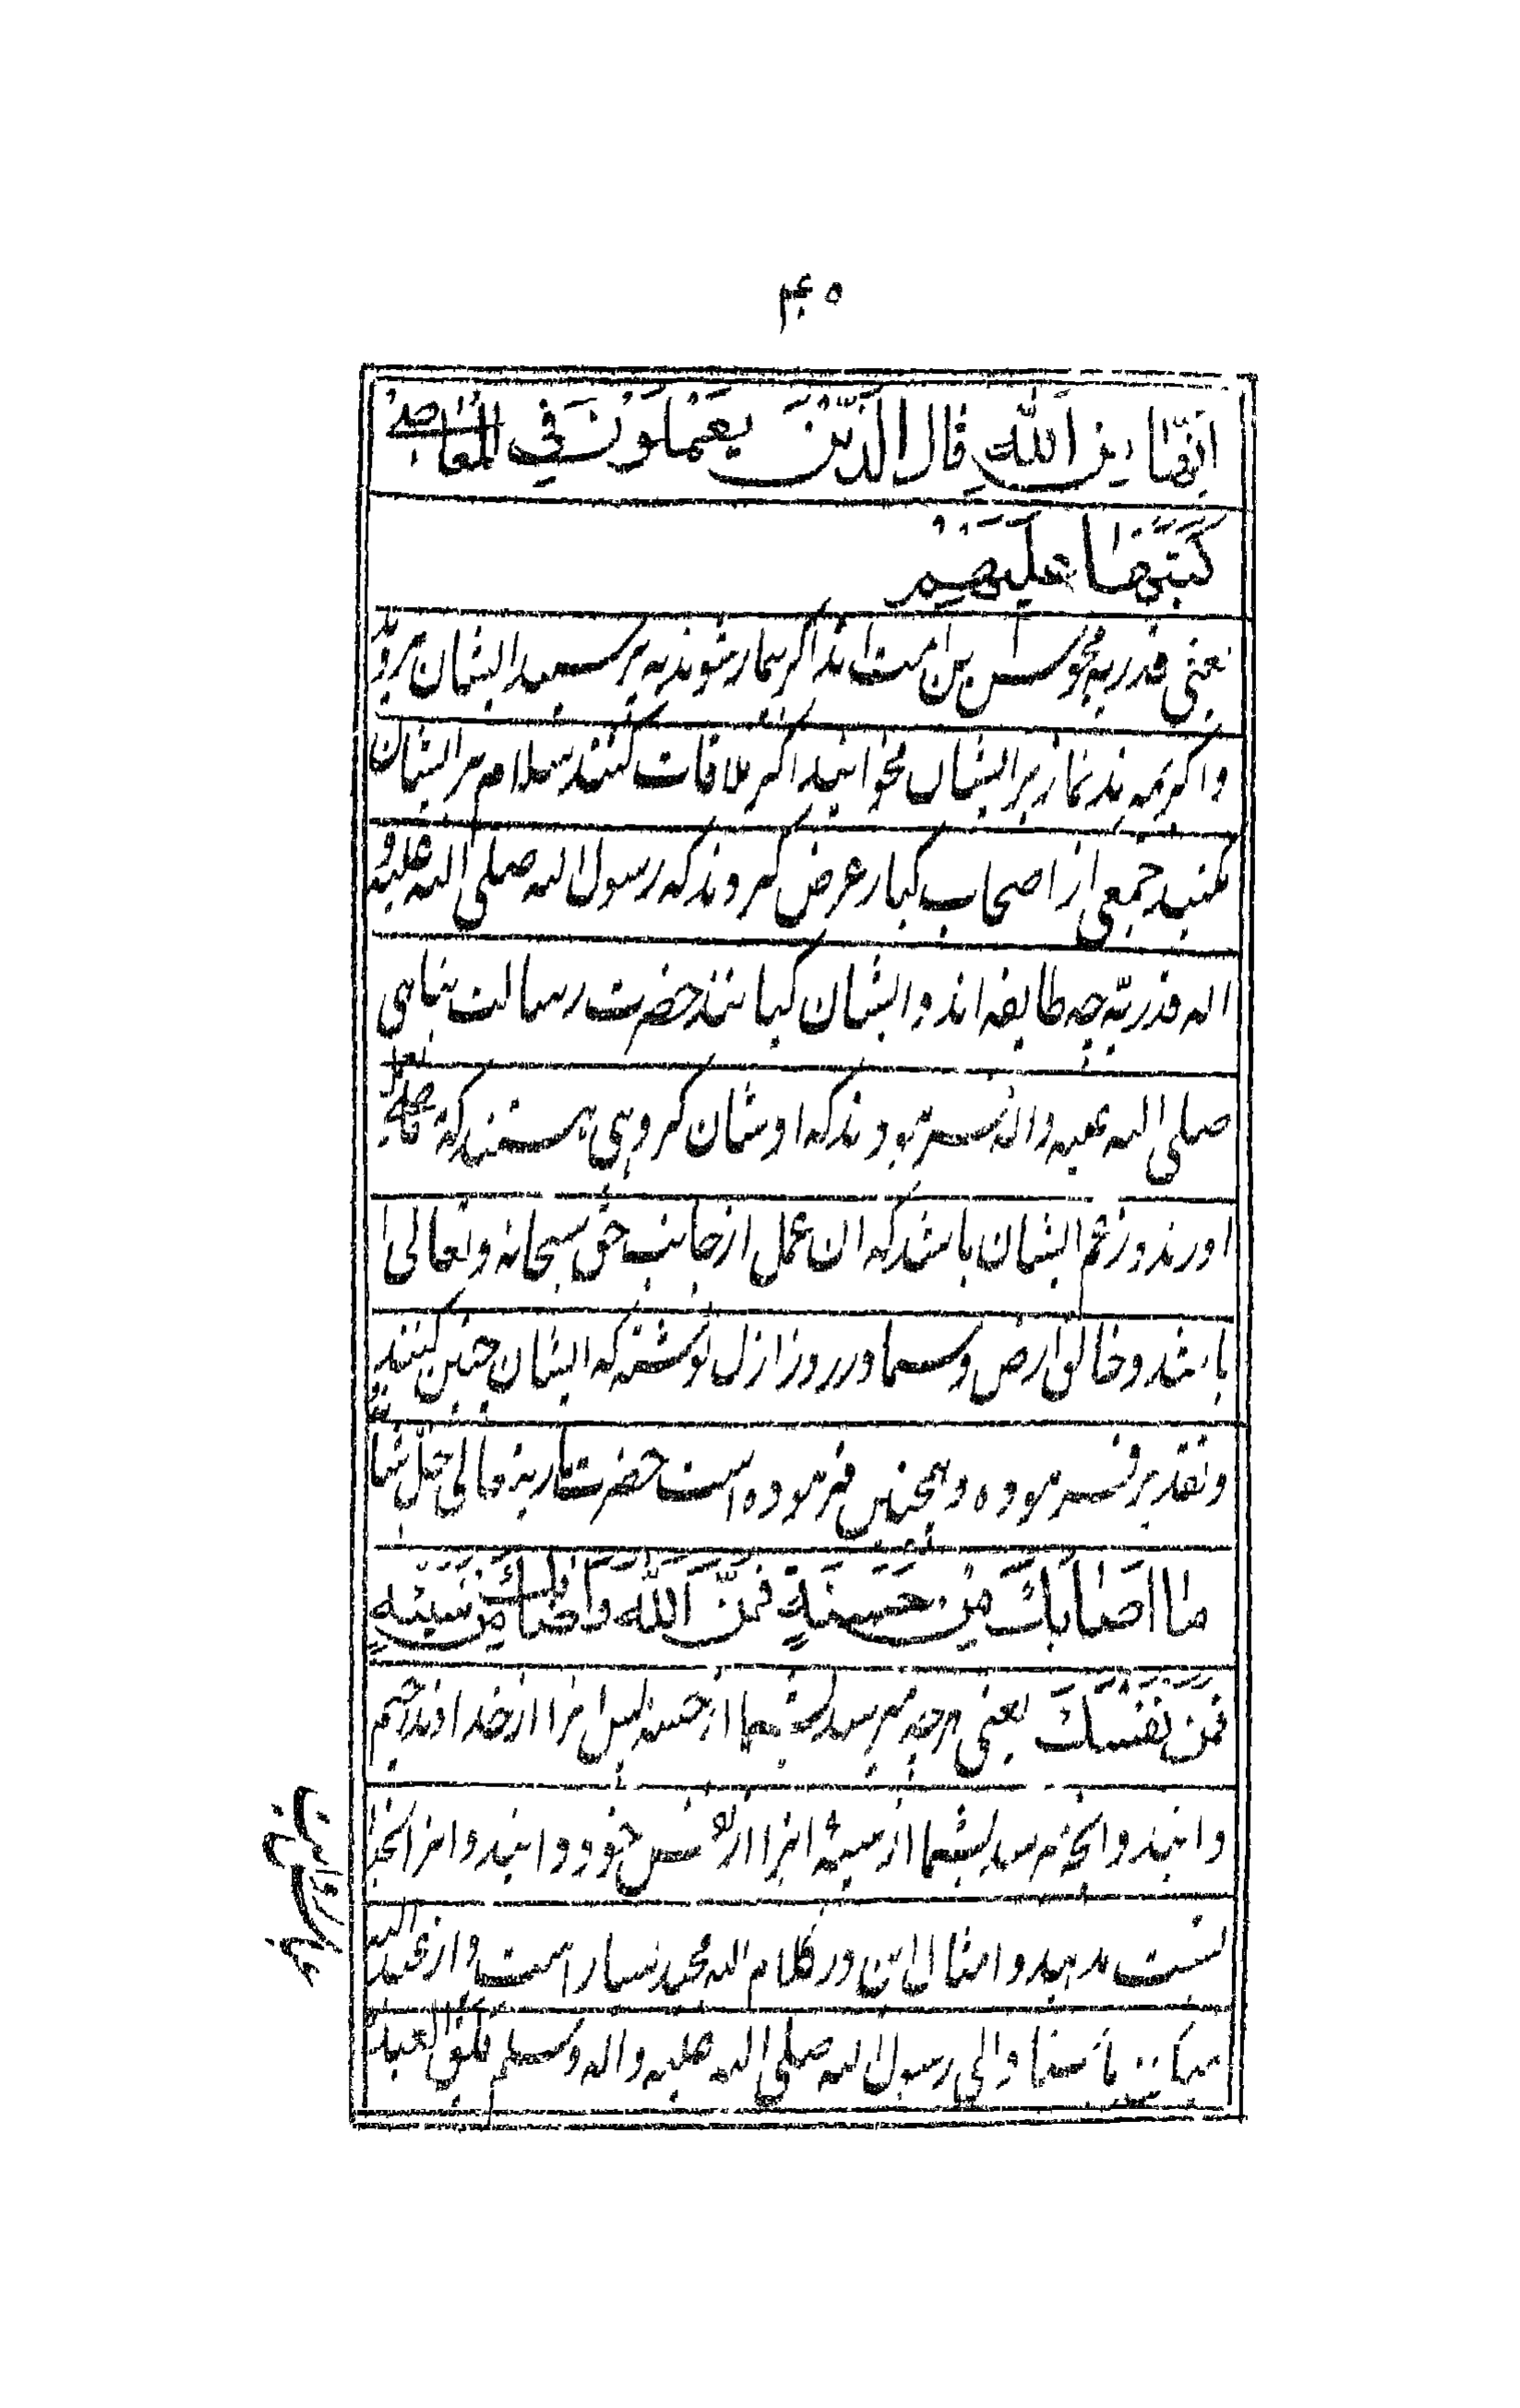 ۴۵
انهٰا من اللهِ قال الَّذِيْنَ يَعْمَلُوْنَ فِي المُعَاصِيْ
كَتَبَهٰا عَلَيْهِمْ
یعنی قدریه مجوس این امت اند اگر بیمار شوند به پرسید ایشان مروید
واگر بمیرند نماز بر ایشان مخوانید اگر ملاقات کنند سلام بر ایشان
مکنید جمعی از اصحاب کبار عرض کردند که رسول الله صلی الله علیه و
اله قدریّه چه طایفه اند و ایشان کیانند حضرت رسالت پناهی
صلی الله علیه واله فرمودند که اوشان گروهی هستند که فعل قبایح
اورند و زعم ایشان باشد که ان عمل از جانب حق سبحانه و تعالی
باشد و خالق ارض و سما در روز ازل نوشته که ایشان چنین کنند
و تقدیر فرموده و همچنین فرموده است حضرت باریتعالی جل شانه
مٰا اصٰابَكَ مِنْ حَسَنَةٍ فَمِنَ اللّٰهِ وَمٰا اَصٰابَكَ مِنْ سَيِّئَةٍ
فَمِنْ نَفْسِكَ یعنی هرچه میرسد بشما از حسنه پس انرا از خداوند رحیم
دانید و انچه رسد بشما از سیئه انرا از نفس خود دانید و انرا بخدا
نسبت مدهید و امثال این در کلام الله مجید بسیار است و از عبدالله
والی رسول الله صلی الله علیه واله وسلم خلق العباد